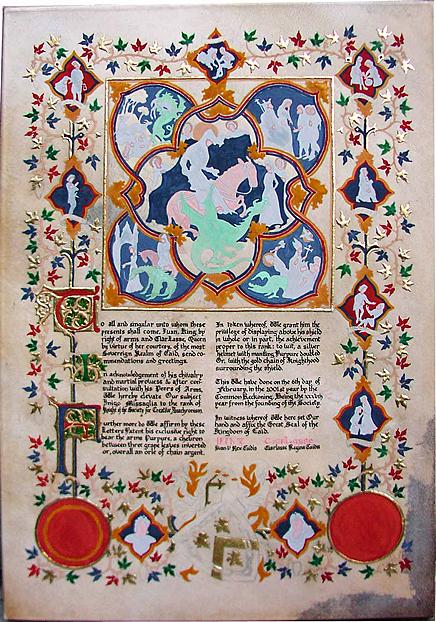 To all and singular unto whom these
presents shall come, Ivan, King by
right of arms and Queen
by virtue of her of the most
Sovereign Realm of Caid, send co-
mmendations and greetings.
In acknowledgement of his chivalry
and martial prowess & after con-
sultation with his Peers of Arms,
We hereby elevate Our subject
Missaglia to the rank of
Knight of the Society for Creative Anachronism.
Further more do We affirm by these
Letters Patent his exclusive right to
bear the arms Purpure, a chevron
between three grape leaves inverted
or, overall an orle of chain argent.
In token whereof, We grant him the
privilege of displaying above his shield
in whole or in part, the achievement
proper to this rank: to wit, a silver
helmet with mantling Purpure doubled
Or, with the gold chain of Knighthood
surrounding the shield.
This We have done on the 6th day of
February, in the 2001st year by the
Common Reckoning, Being the
year from the founding of the Society.
In witness whereof We here set Our
hand and affix the Great Seal of the
Kingdom of Caid.
Ivan Rex Caidis Regina Caidis